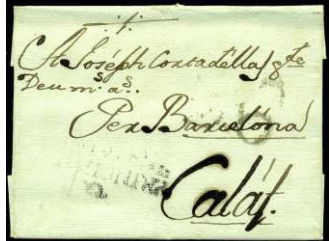 A Joséph Cortadélla g.te
Deu m.s a.s
Per Barcelona
Calàf.